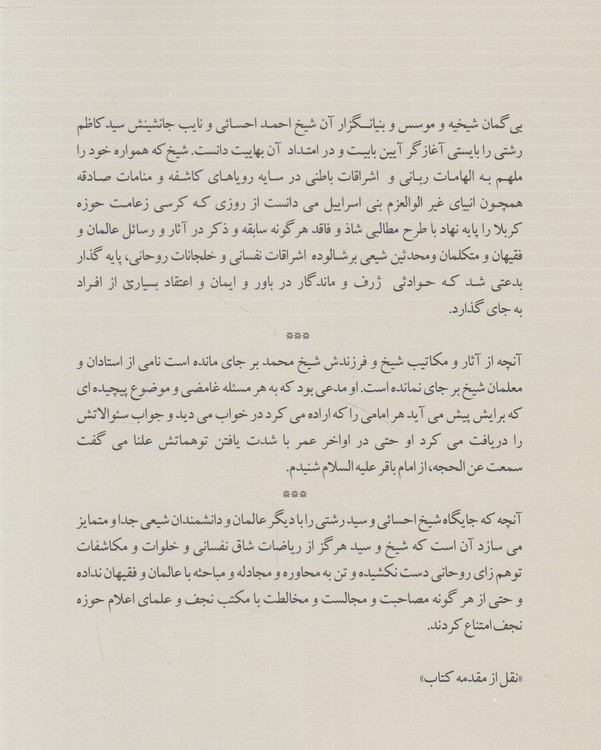 بی گمان شیخیه و موسس و بنیانگزار آن شیخ احمد احسائی و نایب جانشینش سید کاظم
رشتی را بایستی آغازگر آیین بابیت و در امتداد آن بهاییت دانست. شیخ که همواره خود را
ملهم به الهامات ربانی و اشراقات باطنی در سایه رویاهای کاشفه و منامات صادقه
همچون انبیای غیر الوالعزم بنی اسراییل می دانست از روزی که کرسی زعامت حوزه
کربلا را پایه نهاد با طرح مطالبی شاذ و فاقد هرگونه سابقه و ذکر در آثار و رسائل عالمان و
فقیهان و متکلمان ومحدثین شیعی برشالوده اشراقات نفسانی و خلجانات روحانی، پایه گذار
بدعتی شد که حوادثی ژرف و ماندگار در باور و ایمان و اعتقاد بسیاری از افراد
به جای گذارد.
***
آنچه از آثار و مکاتیب شیخ و فرزندش شیخ محمد بر جای مانده است نامی از استادان و
معلمان شیخ بر جای نمانده است. او مدعی بود که به هر مسئله غامضی و موضوع پیچیده ای
که برایش پیش می آید هر امامی را که اراده می کرد در خواب می دید و جواب سئوالاتش
را دریافت می کرد او حتی در اواخر عمر با شدت یافتن توهماتش علنا می گفت
سمعت عن الحجه، از امام باقر علیه السلام شنیدم.
***
آنچه که جایگاه شیخ احسائی و سید رشتی را با دیگر عالمان و دانشمندان شیعی جدا و متمایز
می سازد آن است که شیخ و سید هرگز از ریاضات شاق نفسانی و خلوات و مکاشفات
توهم زای روحانی دست نکشیده و تن به محاوره و مجادله و مباحثه با عالمان و فقیهان نداده
و حتی از هر گونه مصاحبت و مجالست و مخالطت با مکتب نجف و علمای اعلام حوزه
نجف امتناع کردند.
«نقل از مقدمه کتاب»